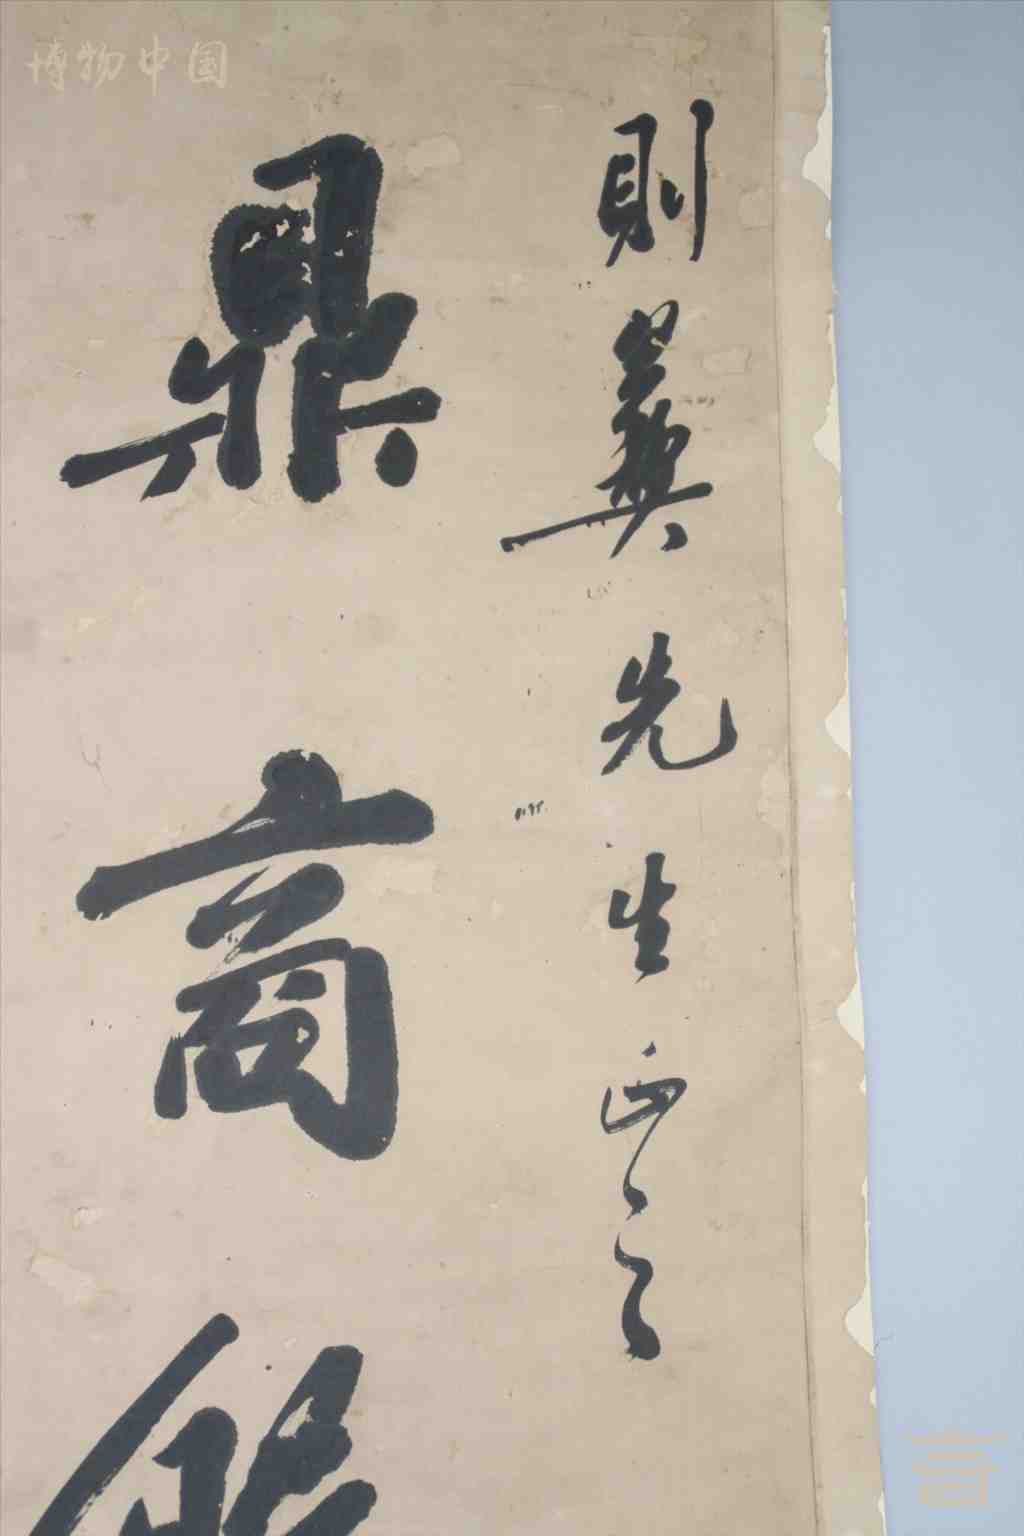 則彝先生正之
鼎商
博物中国